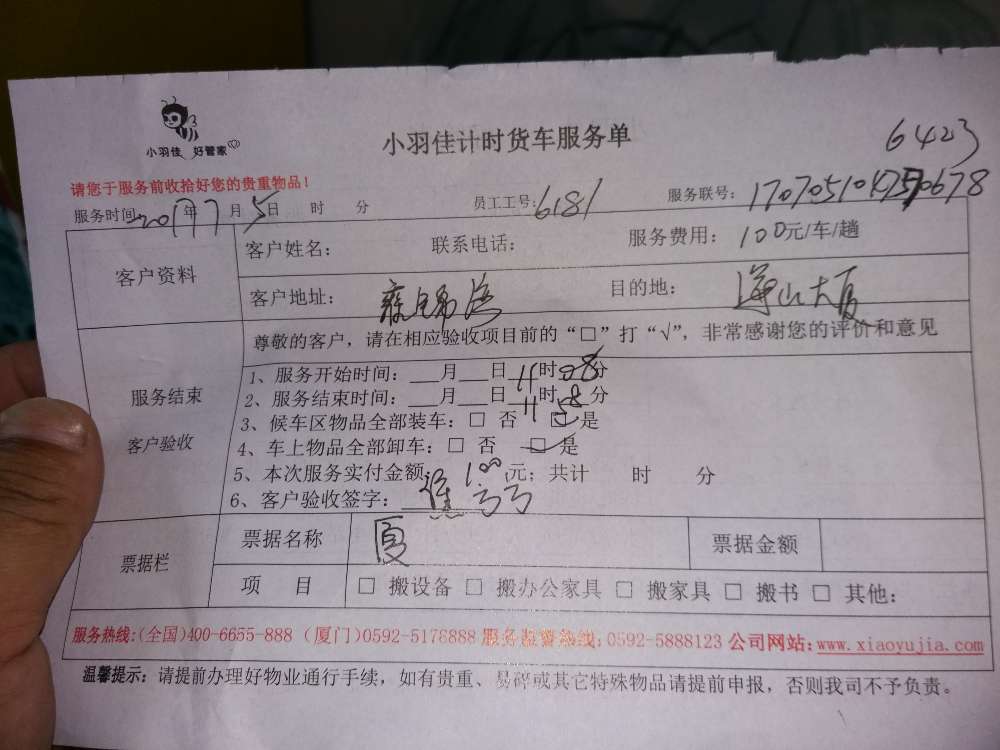 小羽佳 好管家
小羽佳计时货车服务单
6423
请您于服务前收拾好您的贵重物品！
服务时间：2017年7月5日 时 分 员工工号：6181 服务联号：
客户资料
客户姓名： 联系电话： 服务费用：100元/车/趟
客户地址： 目的地： 海山大厦
服务结束
客户验收
尊敬的客户，请在相应验收项目前的“□”打“√”，非常感谢您的评价和意见
1、服务开始时间：___月___日 11时28分
2、服务结束时间：___月___日 11时58分
3、候车区物品全部装车：□ 否 □ 是
4、车上物品全部卸车：□ 否 □ 是
5、本次服务实付金额：100元；共计 时 分
6、客户验收签字：
票据栏
票据名称 厦 票据金额
项 目 □ 搬设备 □ 搬办公家具 □ 搬家具 □ 搬书 □ 其他：
服务热线:(全国)400-6655-888（厦门)0592-5178888 服务监督热线:0592-5888123 公司网站:www.xiaoyujia.com
温馨提示：请提前办理好物业通行手续，如有贵重、易碎或其它特殊物品请提前申报，否则我司不予负责。